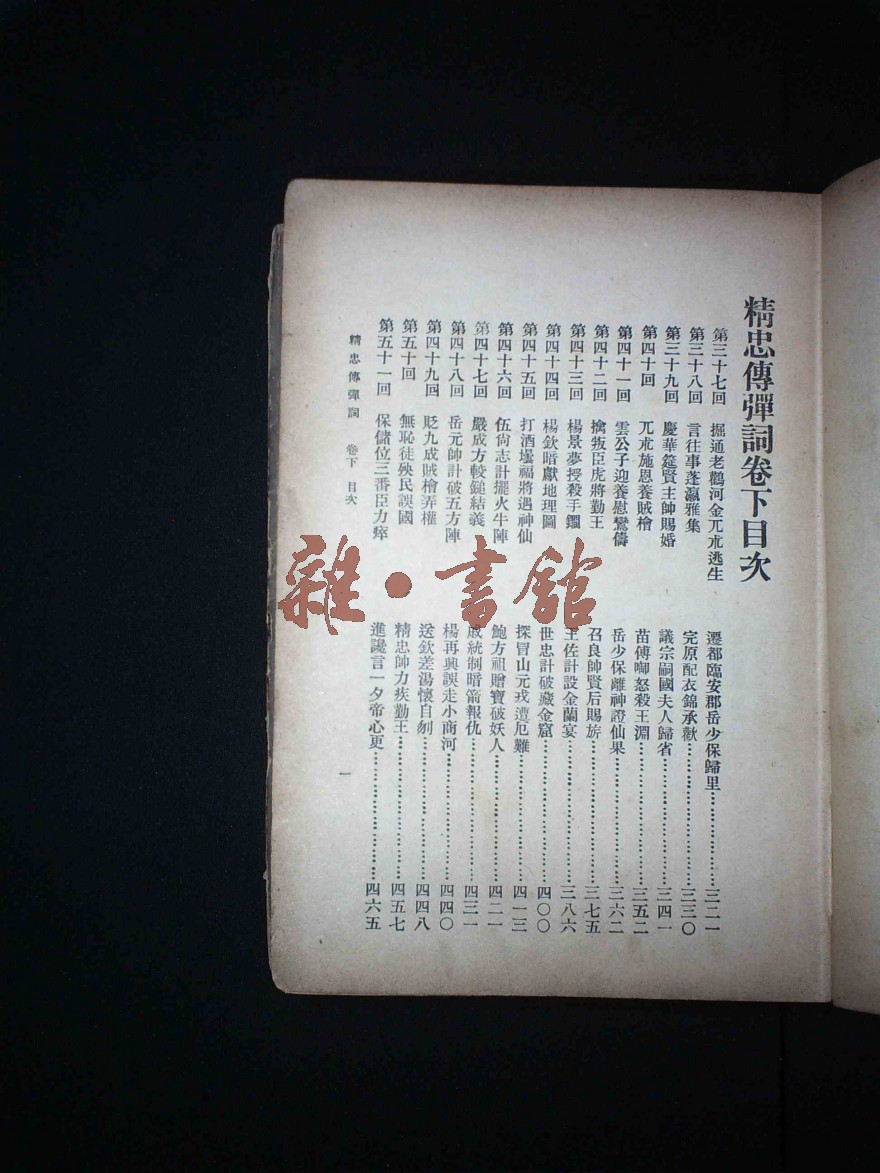 精忠傳彈詞卷下目次
第三十七回 掘通老鸛河金兀朮逃生 遷都臨安郡岳少保歸里 三二一
第三十八回 言往事蓬瀛雅集 完原配衣錦承歡 三三〇
第三十九回 慶華筵賢主帥賜婚 議宗嗣國夫人歸省 三四一
第四十回 兀朮施恩養賊檜 苗傅啣怒殺王淵 三五二
第四十一回 雲公子迎養慰鸞儔 岳少保離神證仙果 三六二
第四十二回 擒叛臣虎將勤王 召良帥賢后賜旂 三七五
第四十三回 楊景夢授殺手鐧 王佐計設金蘭宴 三八六
第四十四回 楊欽暗獻地理圖 世忠計破藏金窟 四〇〇
第四十五回 打酒墰福將遇神仙 探冒山元戎遭厄難 四一三
第四十六回 伍尙志計擺火牛陣 鮑方祖贈寶破妖人 四二一
第四十七回 嚴成方較鎚結義 戚統制暗箭報仇 四三一
第四十八回 岳元帥計破五方陣 楊再興誤走小商河 四四〇
第四十九回 貶九成賊檜弄權 送欽差湯懷自刎 四四八
第五十回 無恥徒殃民誤國 精忠帥力疾勤王 四五七
第五十一回 保儲位三番臣力瘁 進讒言一夕帝心更 四六五
精忠傳彈詞 卷下 目次 一
雜·書館